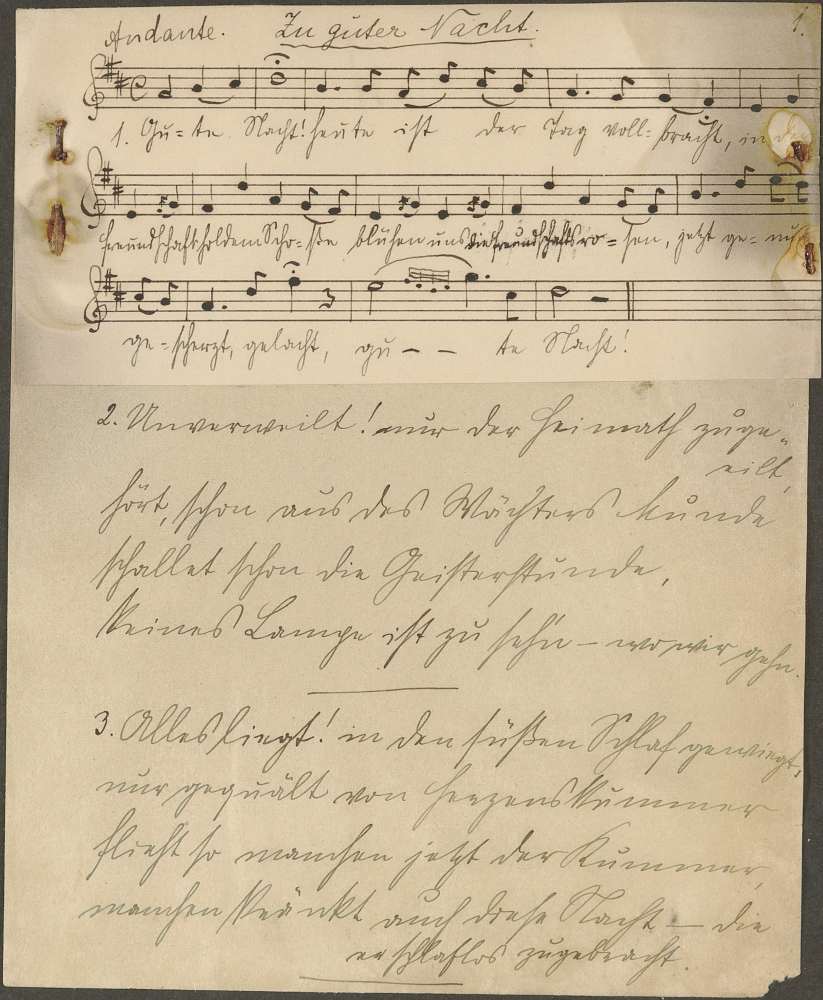 Andante. Zu guter Nacht. 1.
1. Gu=te Nacht! heute ist der Tag voll=bracht, in der
Freundschaft holdem Scho=ße blühen uns die Freundschaftsro=sen, jetzt ge=nug
ge=scherzt, gelacht, gu – – te Nacht!
2. Unverweilt! nur der Heimath zuge=
eilt,
hört, schon aus des Wächters Munde
schallet schon die Geisterstunde,
Keines Lampe ist zu seh'n – wo wir gehn.
3. Alles liegt! in den süßen Schlaf gewiegt,
nur gequält von Herzenskummer
flieht so manchen jetzt der Kummer,
manchen kränkt auch diese Nacht – die
er schlaflos zugebracht.